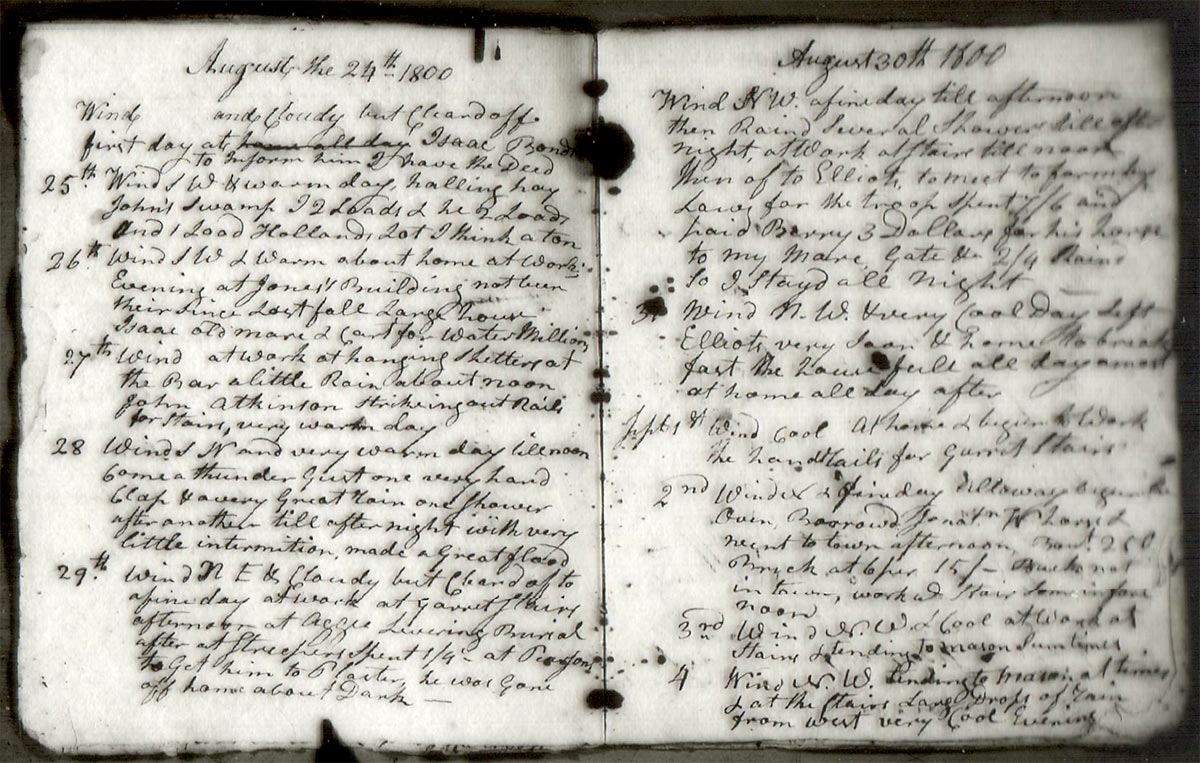 August the 24th 1800
Wind and Cloudy but Cleard off
first day at home all day Isaac Bonds
to Inform him I have the Deed
25th Wind S W & warm day, halling hay
John's Swamp I 2 Loads & he 2 Loads
and 1 Load Hollands Lot I think a ton
26th Wind S W & Warm about home at Work
Evening at Jones's Building not been
their Since Last fall Large house
Isaac old mare & Cart for Water Millions
27th Wind at work at hanging Shetters at
the Bar a little Rain about noon
John Atkinson Strikeing out Rails
for Stairs, very warm day
28 Wind S N and very warm day till noon
Come a thunder Gust one very hard
Clap & a very Great Rain one Shower
after another till after night with very
little intermition, made a Great flood
29th Wind N E & Cloudy but Cleard of to
a fine day at work at Garret Stairs
afternoon at Levering Burial
after at Streepers Spent 1/4 - at
to Get him to Plaster, he was Gone
off home about Dark —
August 30th 1800
Wind N W. a fine day till afternoon
then Raind Several Showers till after
night, at Work at Stairs till noon
then of to Elliots, to meet to form
Laws for the troop Spent 7/6 and
paid Barry 3 Dollars for his horse
to my Mare, Gate &c 2/4 Raind
So I Stayd all Night —
31 Wind N. W & very Cool Day Left
Elliots very Soon & home to break
fast the house full all day amost
at home all day after
Sept 1st Wind Cool At home & begun to Work
the handRails for Garrit Stairs
2nd Wind & a fine day begun the
Oven, Borrowd Jonatn horse &
went to town afternoon, 250
Brick at 6 per 15/- Buck not
in town, workd Stair Som in fore
noon
3rd Wind N. W & Cool at Work at
Stairs & tending to mason Sumtimes
4 Wind N. W. tending to mason at times
& at the Stairs Large Drops of Rain
from west very Cool Evening